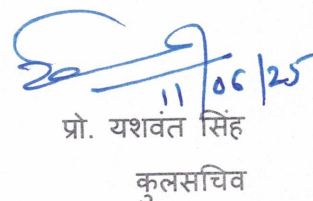 11/06/25
प्रो. यशवंत सिंह
कुलसचिव